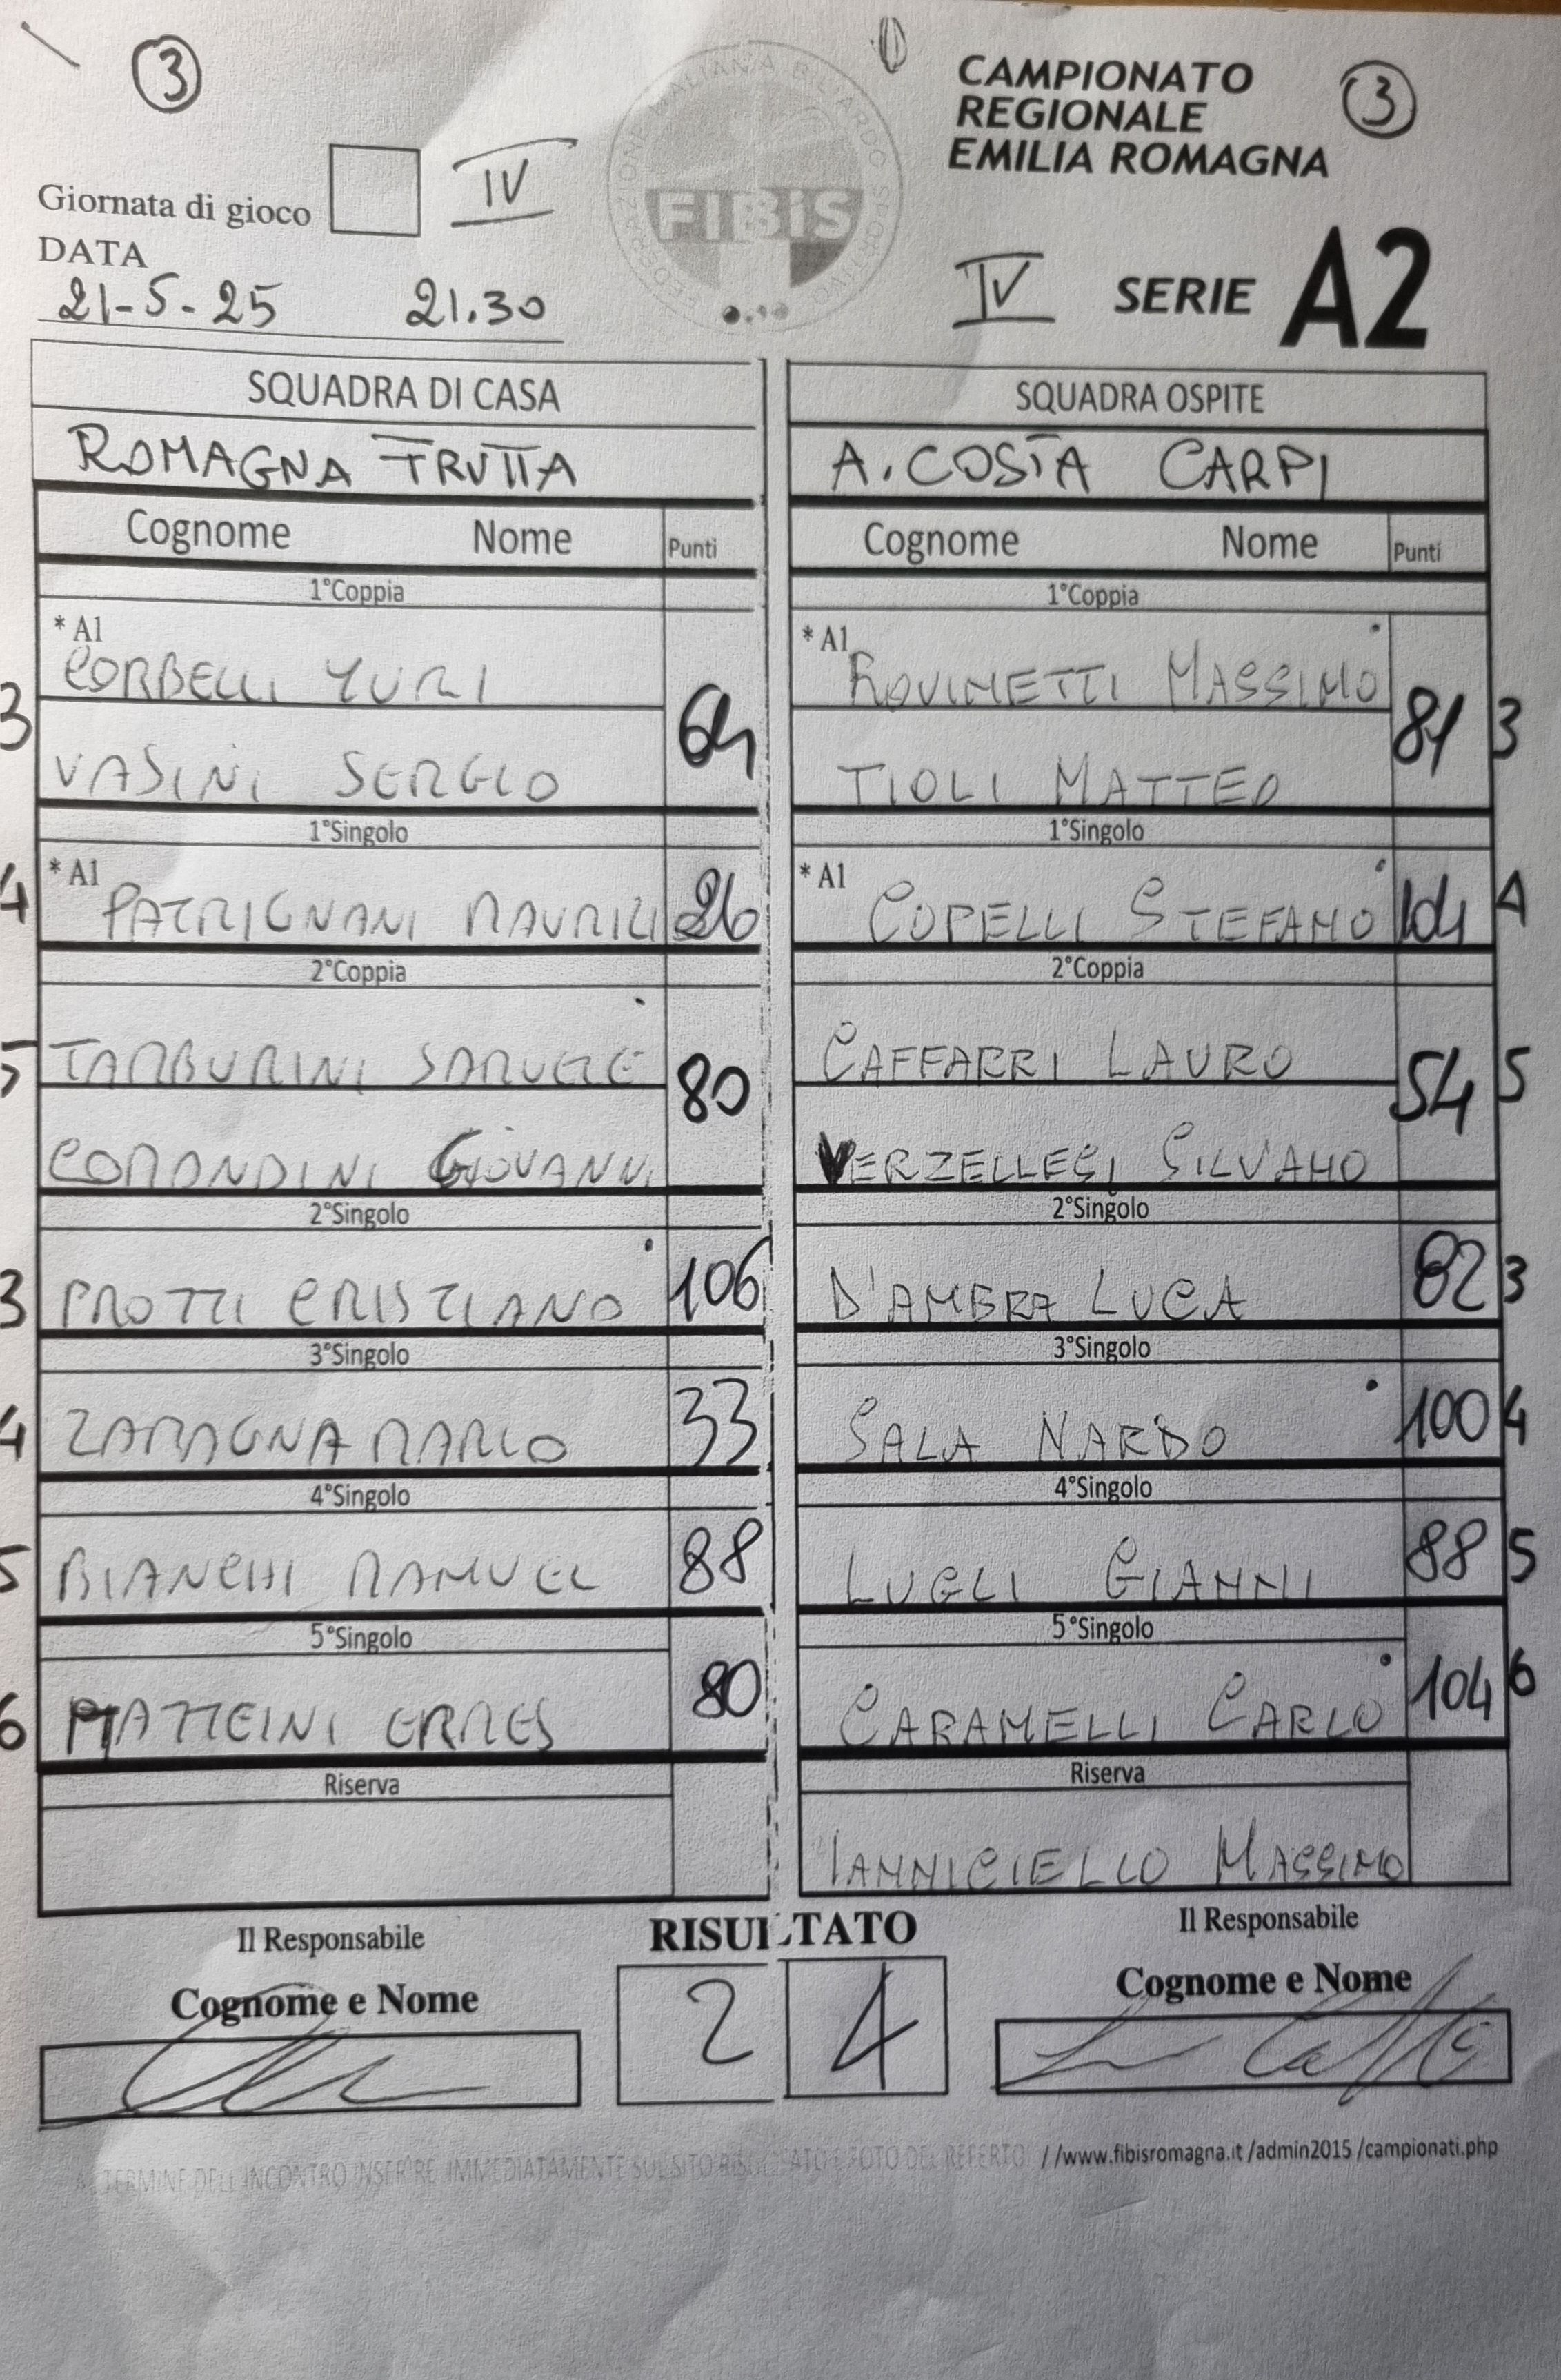 3
CAMPIONATO
REGIONALE
EMILIA ROMAGNA
3
Giornata di gioco IV
DATA
21-5-25 21.30
FIBiS
IV SERIE A2
SQUADRA DI CASA
ROMAGNA FRUTTA
Cognome Nome Punti
1°Coppia
* A1
CORBELLI YURI
3 64
VASINI SERGIO
1°Singolo
* A1
4 PATRIGNANI MAURILI 26
2°Coppia
TAMBURINI SAMUELE
5 80
CORONDINI GIOVANNI
2°Singolo
3 PROTTI CRISTIANO 106
3°Singolo
4 ZAMAGNA MARCO 33
4°Singolo
5 BIANCHI MANUEL 88
5°Singolo
6 MATTEINI ERMES 80
Riserva
SQUADRA OSPITE
A. COSTA CARPI
Cognome Nome Punti
1°Coppia
* A1
ROVINETTI MASSIMO
81 3
TIOLI MATTEO
1°Singolo
* A1
COPELLI STEFANO 104 4
2°Coppia
CAFFARRI LAURO
54 5
VERZELLESI SILVANO
2°Singolo
D'AMBRA LUCA 82 3
3°Singolo
SALA NARDO 100 4
4°Singolo
LUGLI GIANNI 88 5
5°Singolo
CARAMELLI CARLO 104 6
Riserva
IANNICIELLO MASSIMO
Il Responsabile
Cognome e Nome
RISULTATO
2 4
Il Responsabile
Cognome e Nome
AL TERMINE DELL'INCONTRO INSERIRE IMMEDIATAMENTE SUL SITO RISULTATO E FOTO DEL REFERTO //www.fibisromagna.it/admin2015/campionati.php